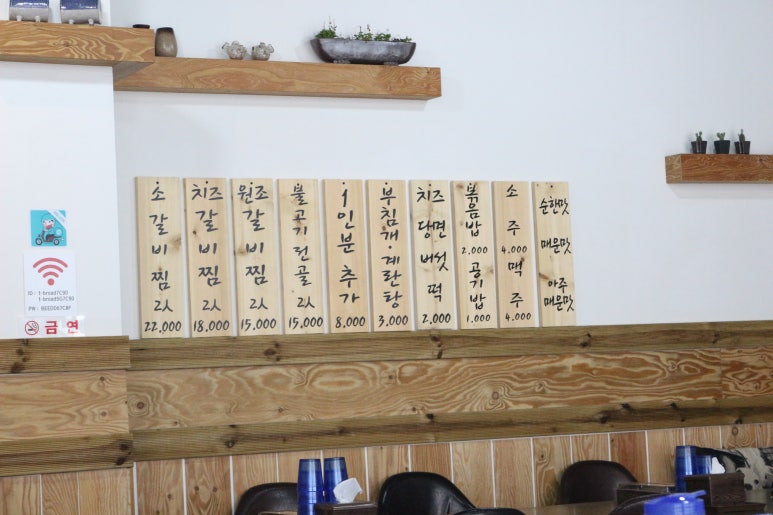 소갈비찜 2人
22,000
치즈갈비찜 2人
18,000
원조갈비찜 2人
15,000
불고기전골 2人
15,000
1인분 추가
8,000
부침개·계란탕
3,000
치즈
당면
버섯
떡
2,000
볶음밥
2,000
공기밥
1,000
소주
4,000
맥주
4,000
순한맛
매운맛
아주
매운맛
금연